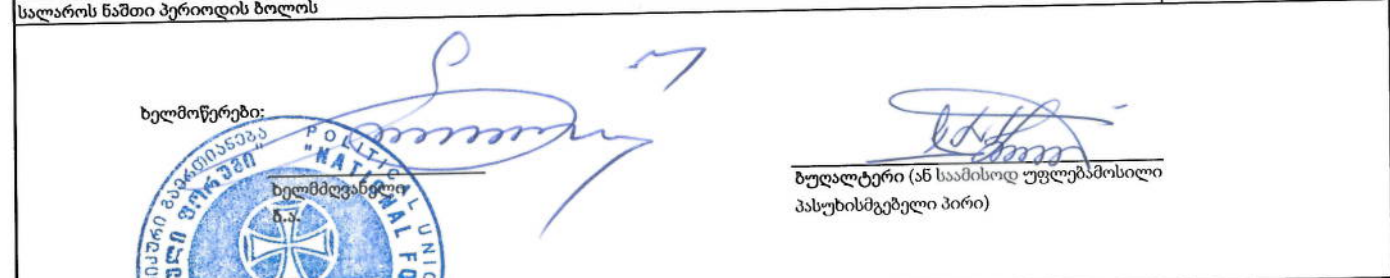 სალაროს ნაშთი პერიოდის ბოლოს
ხელმოწერები:
ხელმძღვანელი
ბ.ა.
ბუღალტერი (ან საამისოდ უფლებამოსილი
პასუხისმგებელი პირი)
POLITICAL
"NATIONAL